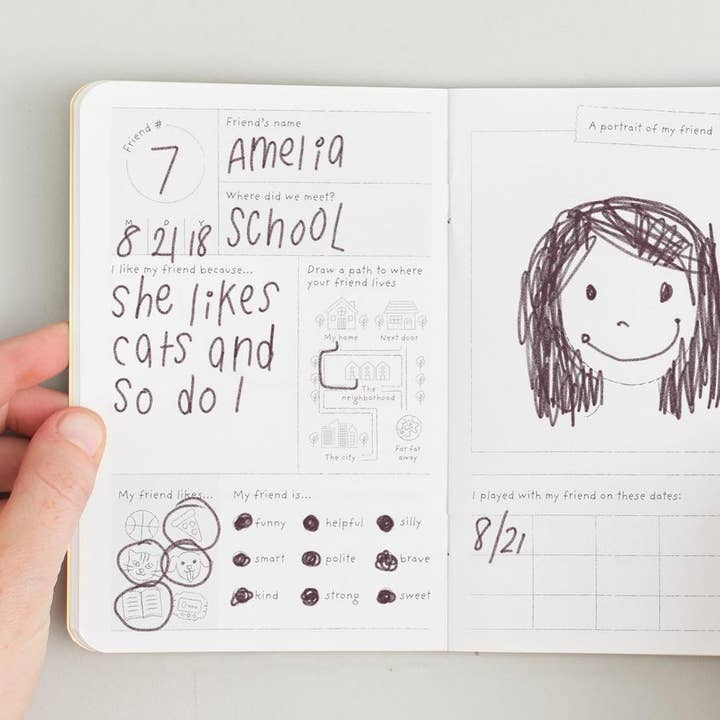 Friend #
7
Friend's name
Amelia
Where did we meet?
SCHOOL
M D Y
8 21 18
I like my friend because...
she likes
cats and
so do I
Draw a path to where
your friend lives
My home Next door
The
neighborhood
The city
Far far
away
My friend likes...
My friend is...
funny helpful silly
smart polite brave
kind strong sweet
A portrait of my friend
I played with my friend on these dates:
8/21